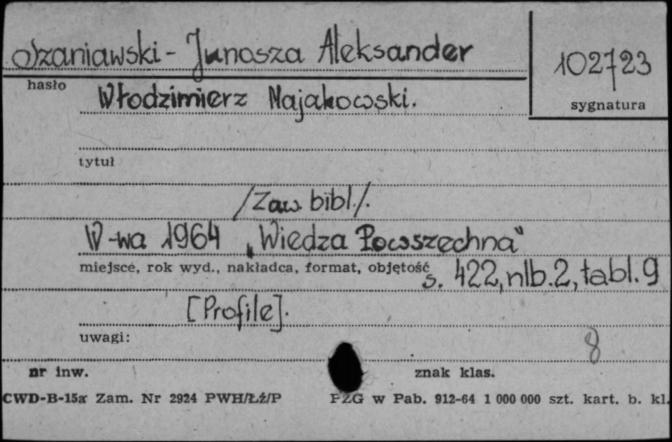 Szaniawski - Junosza Aleksander
102723
hasło
sygnatura
Włodzimierz Majakowski.
tytuł
/Zaw. bibl./.
W-wa 1964 „Wiedza Powszechna"
miejsce, rok wyd., nakładca, format, objętość
s. 422, nlb. 2, tabl. 9
[Profile].
uwagi:
8
nr inw.
znak klas.
CWD-B-15a Zam. Nr 2924 PWH/Łź/P PZG w Pab. 912-64 1 000 000 szt. kart. b. kl.